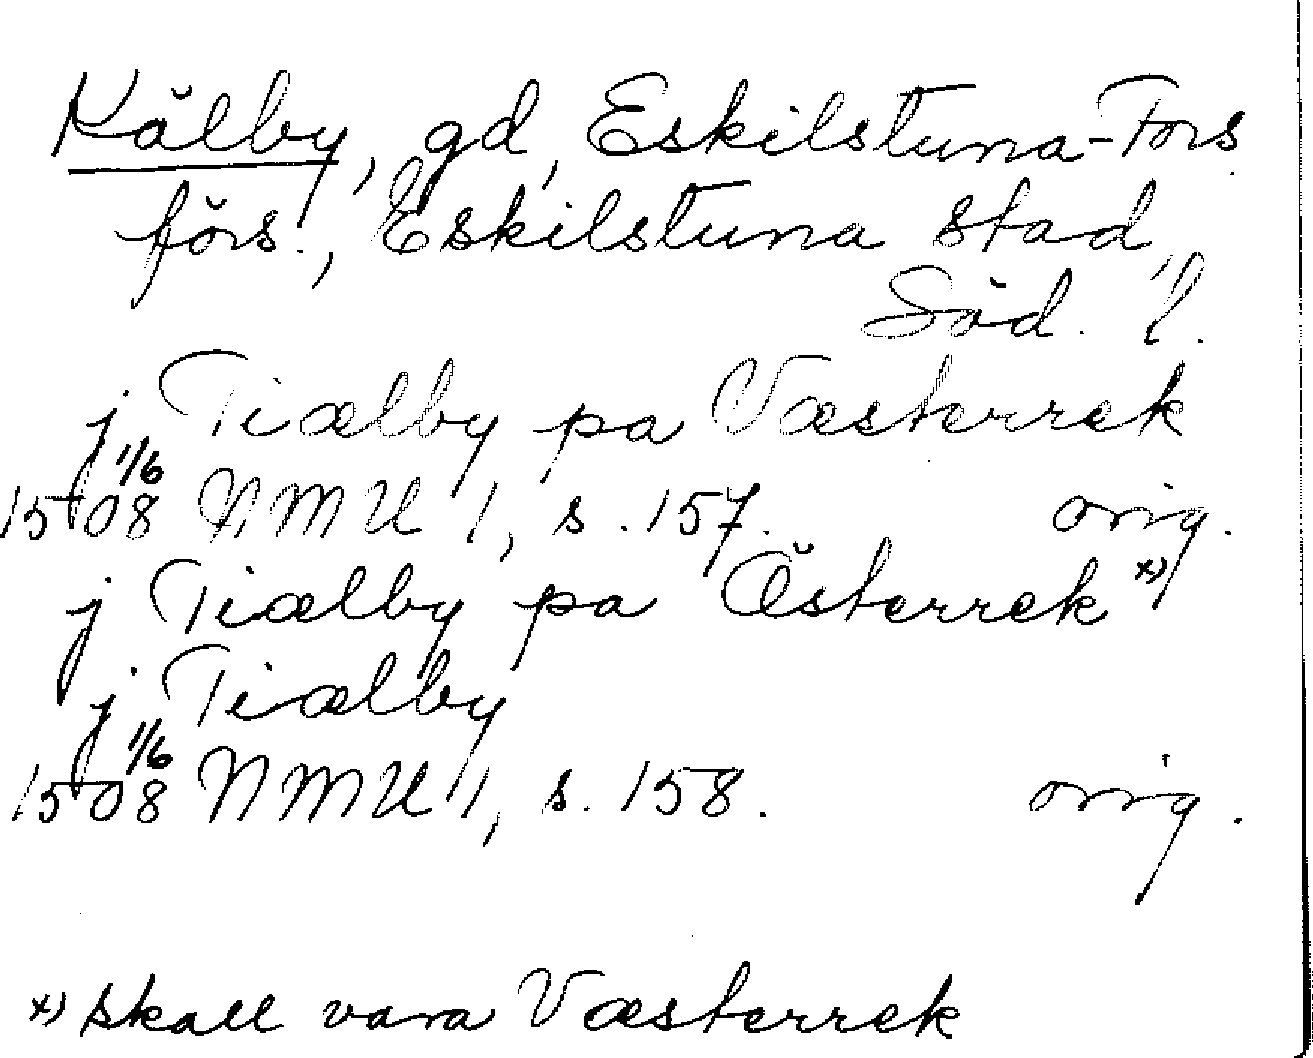 Kälby, gd, Eskilstuna-Fors
förs., Eskilstuna stad,
Söd. l.
j Tiælby pa Væsterrek
1/6
1508 NMU 1, s. 157. orig.
j Tiælby pa Österrek x)
j Tiælby
1/6
1508 NMU 1, s. 158. orig.
x) skall vara Væsterrek